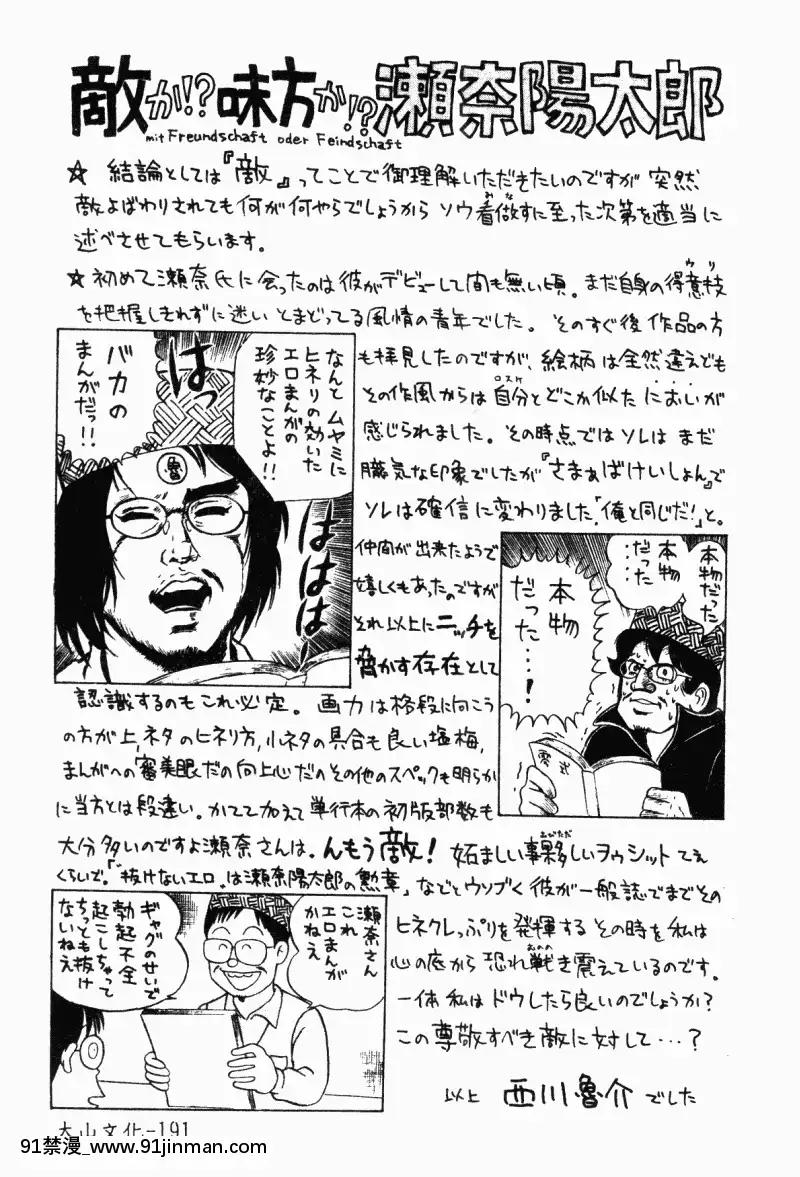 敵か!?味方か!?瀬奈陽太郎
mit Freundschaft oder Feindschaft
☆ 結論としては『敵』ってことで御理解いただきたいのですが 突然
敵よばわりされても何が何やらでしょうから ソウ看做すに至った次第を適当に
みな
述べさせてもらいます。
☆ 初めて瀬奈氏に会ったのは彼がデビューして間も無い頃。まだ自身の得意技
ウリ
を把握しきれずに迷い とまどってる風情の青年でした。そのすぐ後 作品の方
も拝見したのですが、絵柄は全然違えども
その作風からは自分とどこか似た においが
ロスケ
感じられました。その時点ではソレは まだ
朧気な印象でしたが『さまぁばけいしょん』で
ソレは確信に変わりました「俺と同じだ!」と。
なんと ムヤミに
ヒネリの効いた
エロまんがの
珍妙なことよ!!
はっ
バカの
まんがだっ!!
魯
ははは
仲間が出来たようで
嬉しくもあった。のですが
それ以上にニッチを
脅かす存在として
本物だった
本物
だった
…
本物
だった…!
零式
認識するのもこれ必定。画力は格段に向こう
の方が上、ネタのヒネリ方、小ネタの具合も良い塩梅、
まんがへの審美眼だの向上心だのその他のスペックも明らか
に当方とは段違い。かてて加えて単行本の初版部数も
大分多いのですよ瀬奈さんは。んもう敵! 妬ましい事夥しいヲゥシットてえ
おびただ
くらいで。「『抜けないエロ』は瀬奈陽太郎の勲章」などとウソブく彼が一般誌でまでその
ヒネクレっぷりを発揮する その時を私は
心の底から恐れ戦き震えているのです。
おのの
一体 私は ドウしたら良いのでしょうか?
この尊敬すべき敵に対して…?
瀬奈さん
これ
エロまんが
かねえ
ギャグのせいで
勃起不全
起こしちゃって
ちっとも抜け
ないねえ
以上 西川魯介 でした
大山文化-191
91禁漫_www.91jinman.com